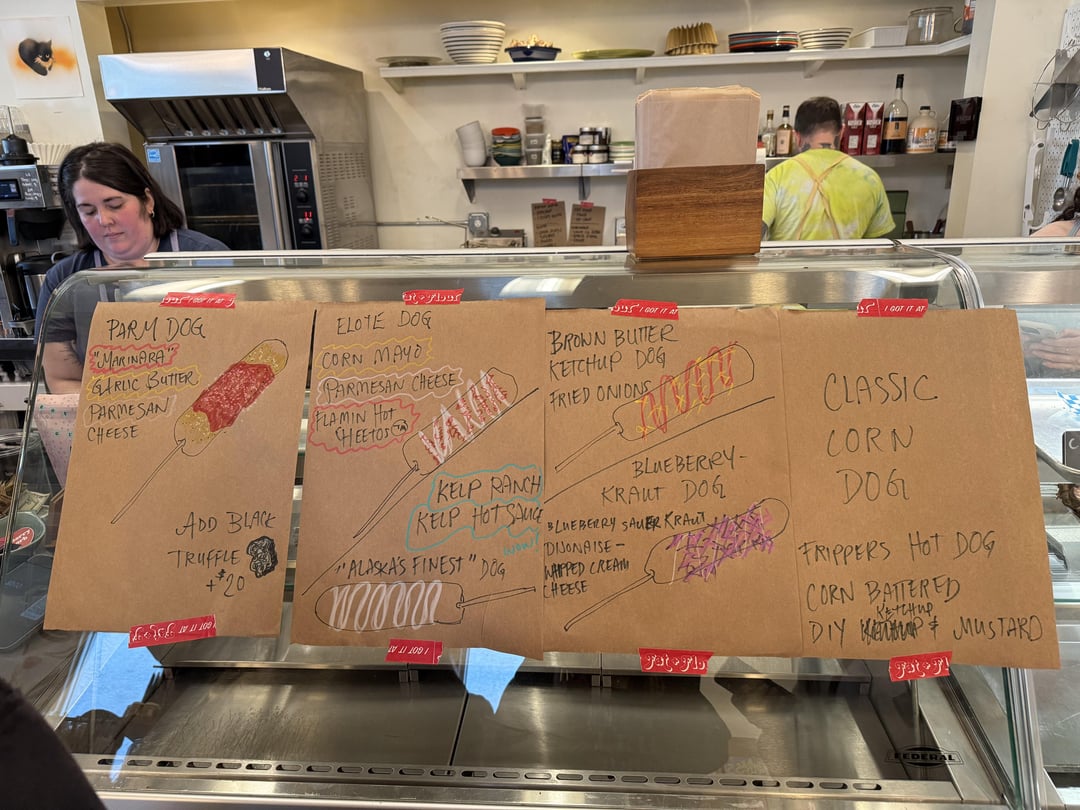 PARM DOG
"MARINARA"
GARLIC BUTTER
PARMESAN
CHEESE
ADD BLACK
TRUFFLE
+$20
ELOTE DOG
CORN MAYO
PARMESAN CHEESE
FLAMIN HOT
CHEETOS TM
KELP RANCH
KELP HOT SAUCE
WOW!
"ALASKA'S FINEST" DOG
BROWN BUTTER
KETCHUP DOG
FRIED ONIONS
BLUEBERRY-
KRAUT DOG
BLUEBERRY SAUERKRAUT
DIJONAISE-
WHIPPED CREAM
CHEESE
CLASSIC
CORN
DOG
FRIPPERS HOT DOG
CORN BATTERED
KETCHUP
DIY & MUSTARD
I GOT IT AT
fat+flour
I GOT IT AT
I GOT IT AT
I GOT IT AT
I GOT IT AT
FEDERAL